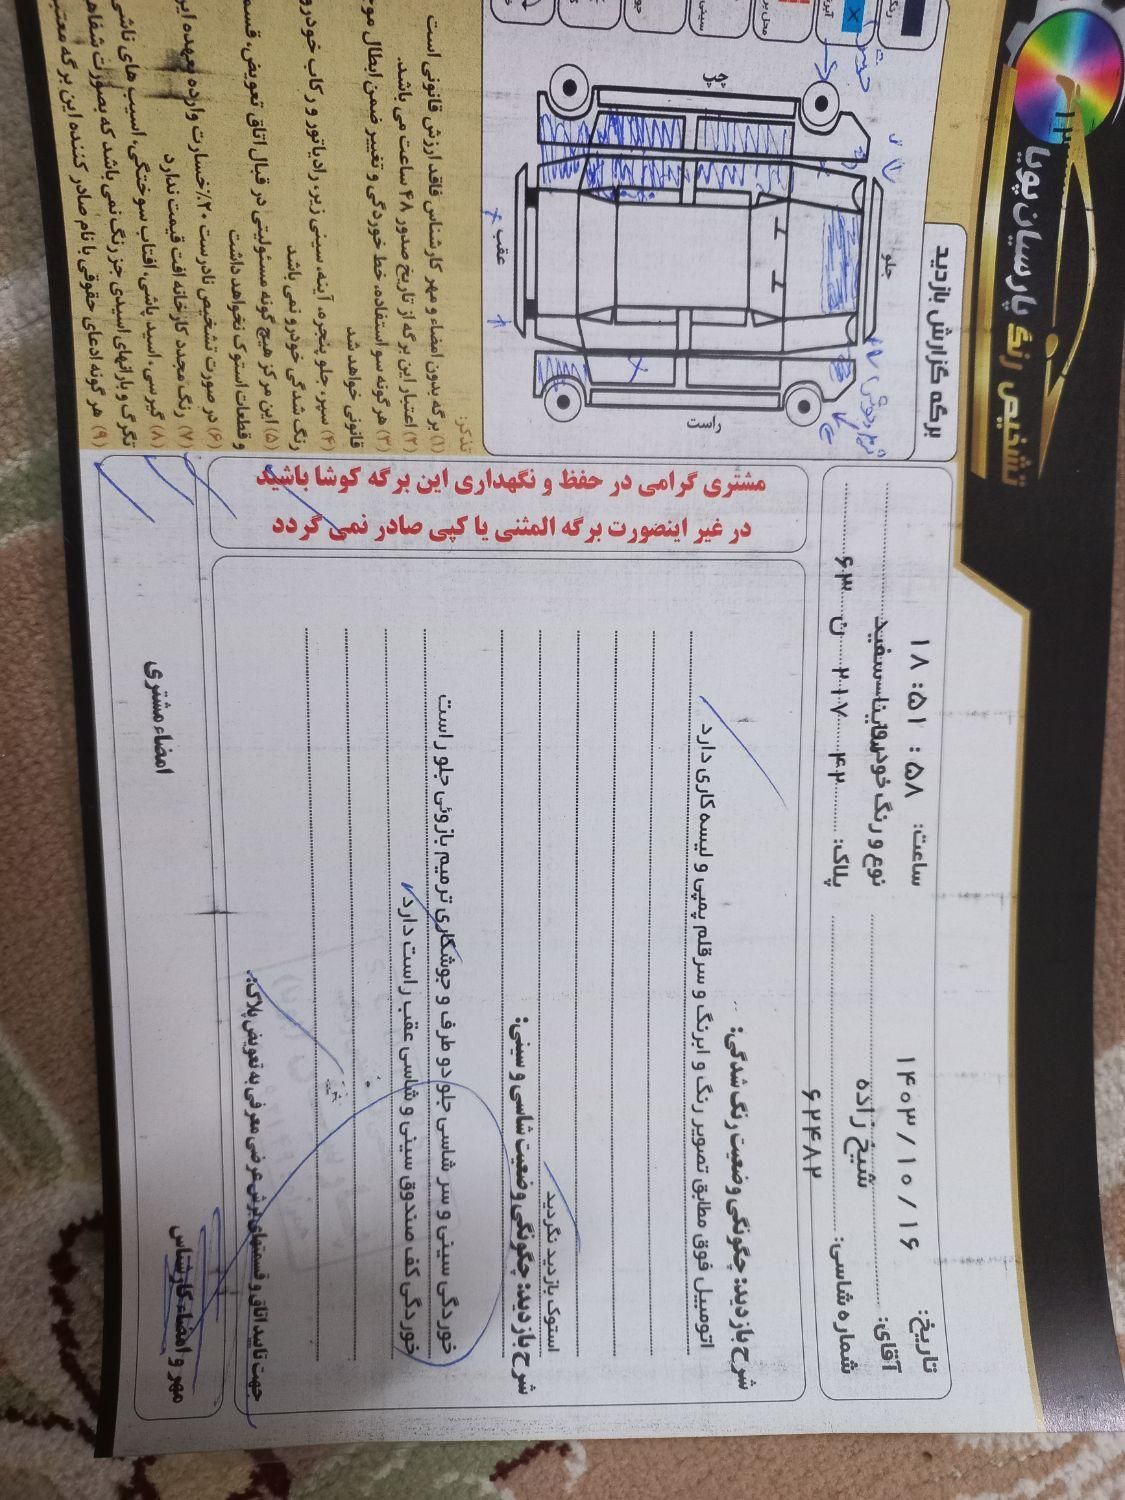 تشخیص رنگ پارسیان پویا
برگه گزارش بازدید
تاریخ: ۱۴۰۳/۱۰/۱۶
ساعت: ۱۸:۵۱:۵۸
آقای: شیخ زاده
نوع و رنگ خودرو: ساینا سفید
شماره شاسی: ۶۲۴۸۲
پلاک: ۴۲ ۲۱۷ ن ۶۳
جلو
چپ
راست
عقب
شرح بازدید: چگونگی وضعیت رنگ شدگی:
اتومبیل فوق مطابق تصویر رنگ و ابرنگ و سرقلم پمپی و لیسه کاری دارد
استوک بازدید نگردید
شرح بازدید: چگونگی وضعیت شاسی و سینی:
خوردگی سینی و سر شاسی جلو دو طرف و جوشکاری ترمیم بازوئی جلو راست
خوردگی کف صندوق سینی و شاسی عقب راست دارد
جهت تایید اتاق و قسمتهای برش عرضی معرفی به تعویض پلاک:
مشتری گرامی در حفظ و نگهداری این برگه کوشا باشید
در غیر اینصورت برگه المثنی یا کپی صادر نمی گردد
تذکر:
۱) برگه بدون امضاء و مهر کارشناس فاقد ارزش قانونی است
۲) اعتبار این برگه از تاریخ صدور ۴۸ ساعت می باشد.
۳) هر گونه سو استفاده، خط خوردگی و تغییر ضمن ابطال
قانونی خواهد شد
۴) سپر، جلو پنجره، آینه، سینی زیر، رادیاتور و رکاب خودرو
رنگ شدگی خودرو نمی باشد
۵) این مرکز هیچ گونه مسئولیتی در قبال اتاق تعویض،
و قطعات استوک نخواهد داشت
۶) در صورت تشخیص نادرست ۲۰٪ خسارت وارده بعهده
۷) رنگ مجدد کارخانه افت قیمت ندارد
۸) گیرسی، اسید پاشی، افتاب سوختگی، اسیب های ناشی
تگرگ و بارانهای اسیدی جز رنگ نمی باشد که بصورت
۹) هر گونه ادعای حقوقی با نام صادر کننده این برگه
مهر و امضاء کارشناس
امضاء مشتری